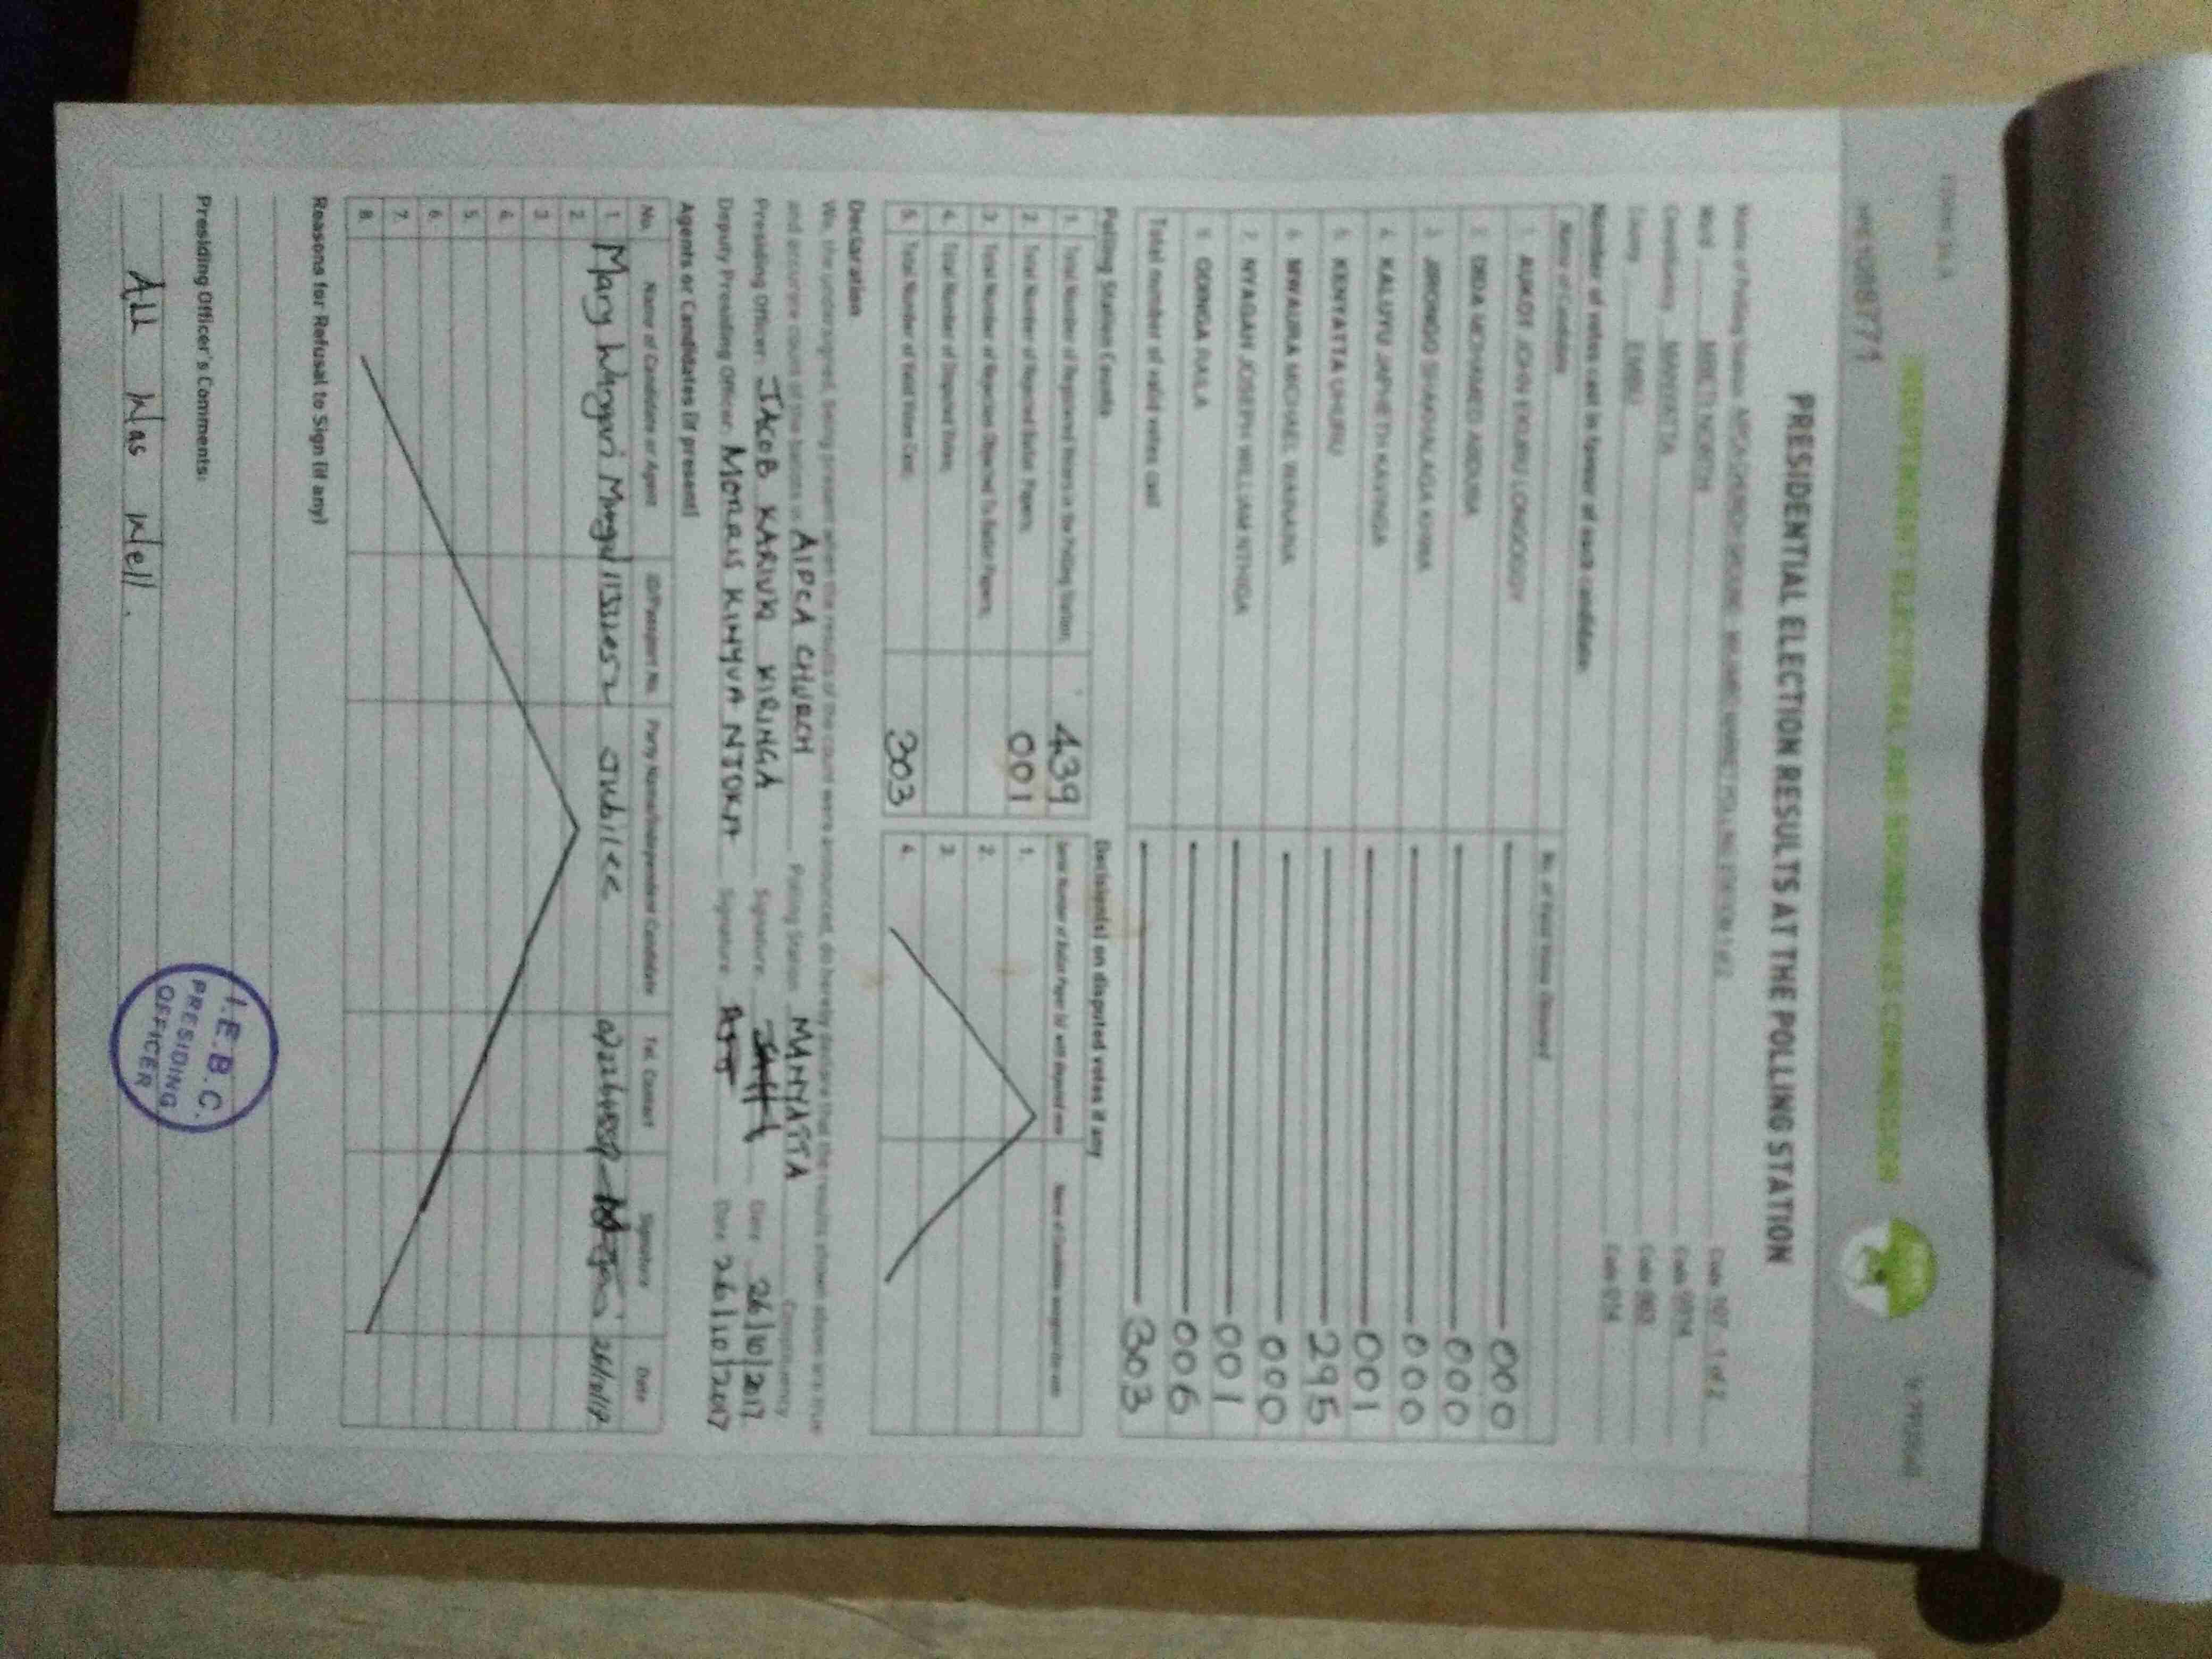 INDEPENDENT ELECTORAL AND BOUNDARIES COMMISSION
PRESIDENTIAL ELECTION RESULTS AT THE POLLING STATION
Name of Polling Station
Ward NORTH
Constituency MANYATTA
County EMBU
Number of votes cast in favour of each candidate
Name of Candidate No. of Valid Votes Obtained
1. AUKOT JOHN EKURU LONGOGGY 000
2. DIDA MOHAMED ABDUBA 000
3. JIRONGO SHAKHALAGA KHWA 000
4. KALUYU JAPHETH KAVINGA 001
5. KENYATTA UHURU 295
6. MWAURA MICHAEL WAINAINA 000
7. NYAGAH JOSEPH WILLIAM NTHIGA 001
8. ODINGA RAILA 006
Total number of valid votes cast 303
Polling Station Counts
1. Total Number of Registered Voters in the Polling Station 439
2. Total Number of Rejected Ballot Papers 001
3. Total Number of Rejection Objected To Ballot Papers
4. Total Number of Disputed Votes
5. Total Number of Valid Votes Cast 303
Decision(s) on disputed votes if any
1.
2.
3.
4.
Declaration
We, the undersigned, being present when the results of the count were announced, do hereby declare that the results shown above are true
and accurate count of the ballots in AIPCA CHURCH Polling Station MANYATTA Constituency
Presiding Officer: JACOB KARIUKI KIRINGA Signature Date 26/10/2017
Deputy Presiding Officer: MORRIS KINYUA NJOKA Signature Date 26/10/2017
Agents or Candidates (if present)
No. Name of Candidate or Agent ID/Passport No. Party Name/Independent Candidate Tel. Contact Signature Date
1. Mary Jubilee 26/10/17
2.
3.
4.
5.
6.
7.
8.
Reasons for Refusal to Sign (if any)
Presiding Officer's Comments:
All Was Well.
I.E.B.C.
PRESIDING
OFFICER